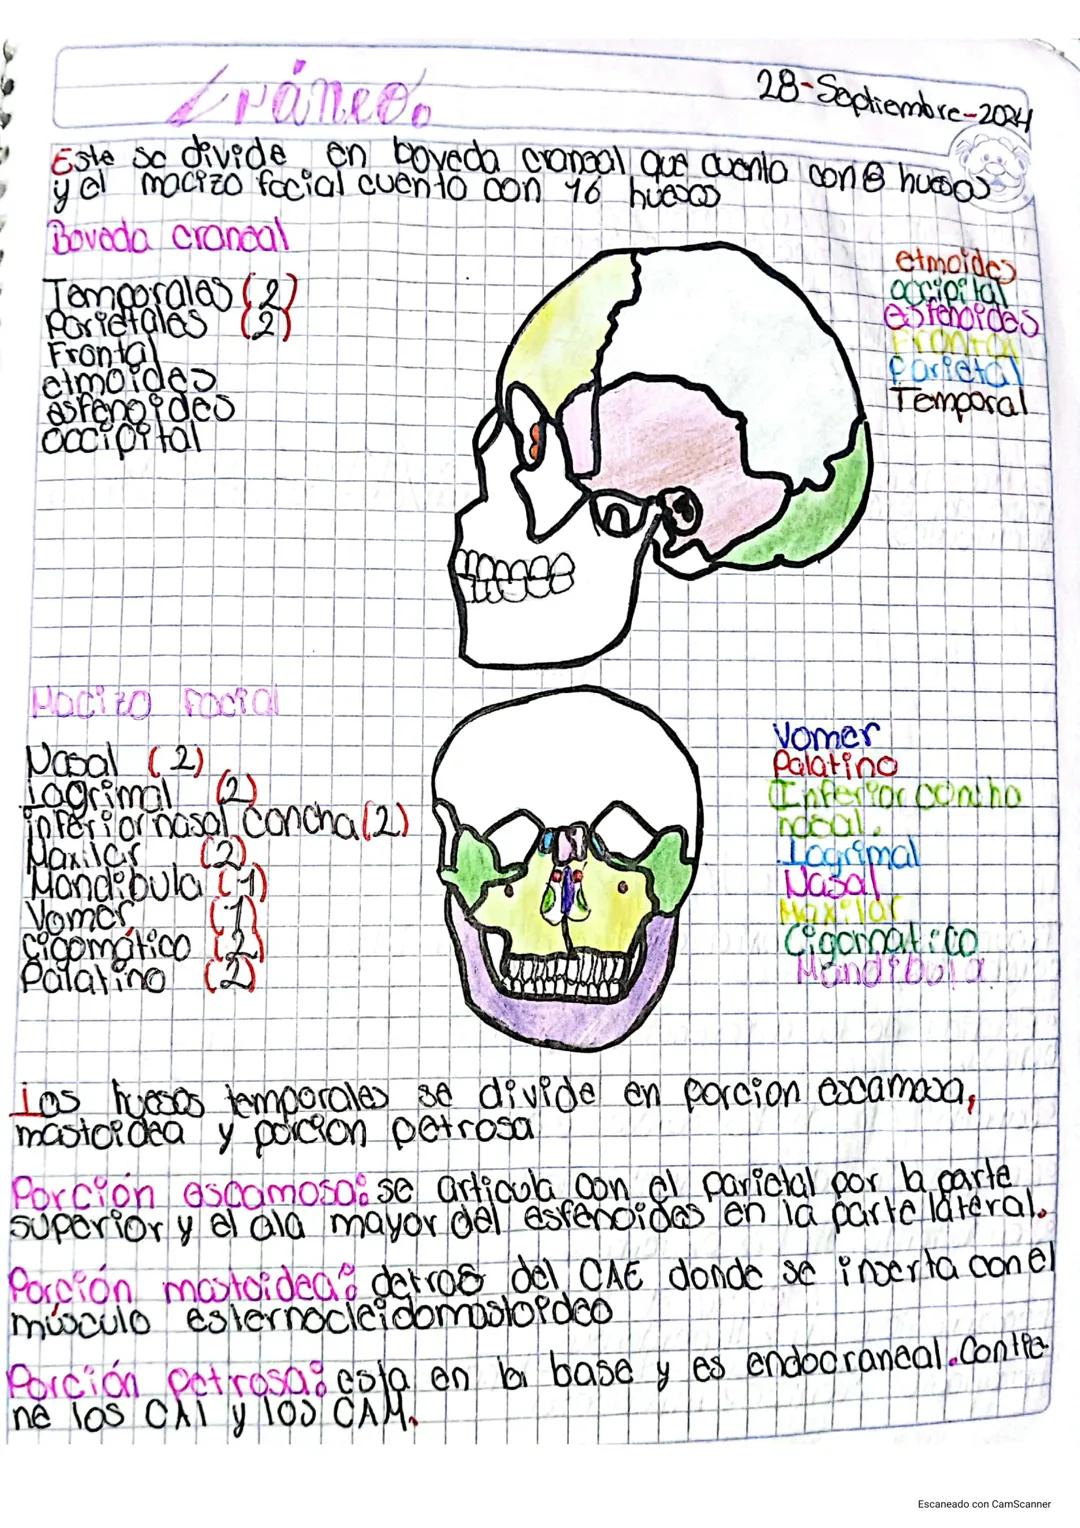 Cráneo.
28-Septiembre-2024
Este se divide en boveda craneal que cuenta con 8 huesos
y el macizo facial cuento con 16 huesos
Boveda craneal
Temporales (2)
Parietales (2)
Frontal
etmoides
esfenoides
occipital
etmoides
occipital
esfenoides
Frontal
Parietal
Temporal
Macizo facial
Nasal (2)
Lagrimal (2)
inferior nasal concha (2)
Maxilar (2)
Mandibula (1)
Vomer (1)
Cigomático (2)
Palatino (2)
Vomer
Palatino
Inferior concha
nasal.
Lagrimal
Nasal
Maxilar
Cigomatico
Mandibula
Los huesos temporales se divide en porcion escamosa,
mastoidea y porcion petrosa
Porción escamosa: se articula con el parietal por la parte
superior y el ala mayor del esfenoides en la parte lateral.
Porción mastoidea: detras del CAE donde se inserta con el
músculo esternocleidomastoideo
Porción petrosa: esta en la base y es endocraneal. Contie-
ne los CAI y los CAM.
Escaneado con CamScanner